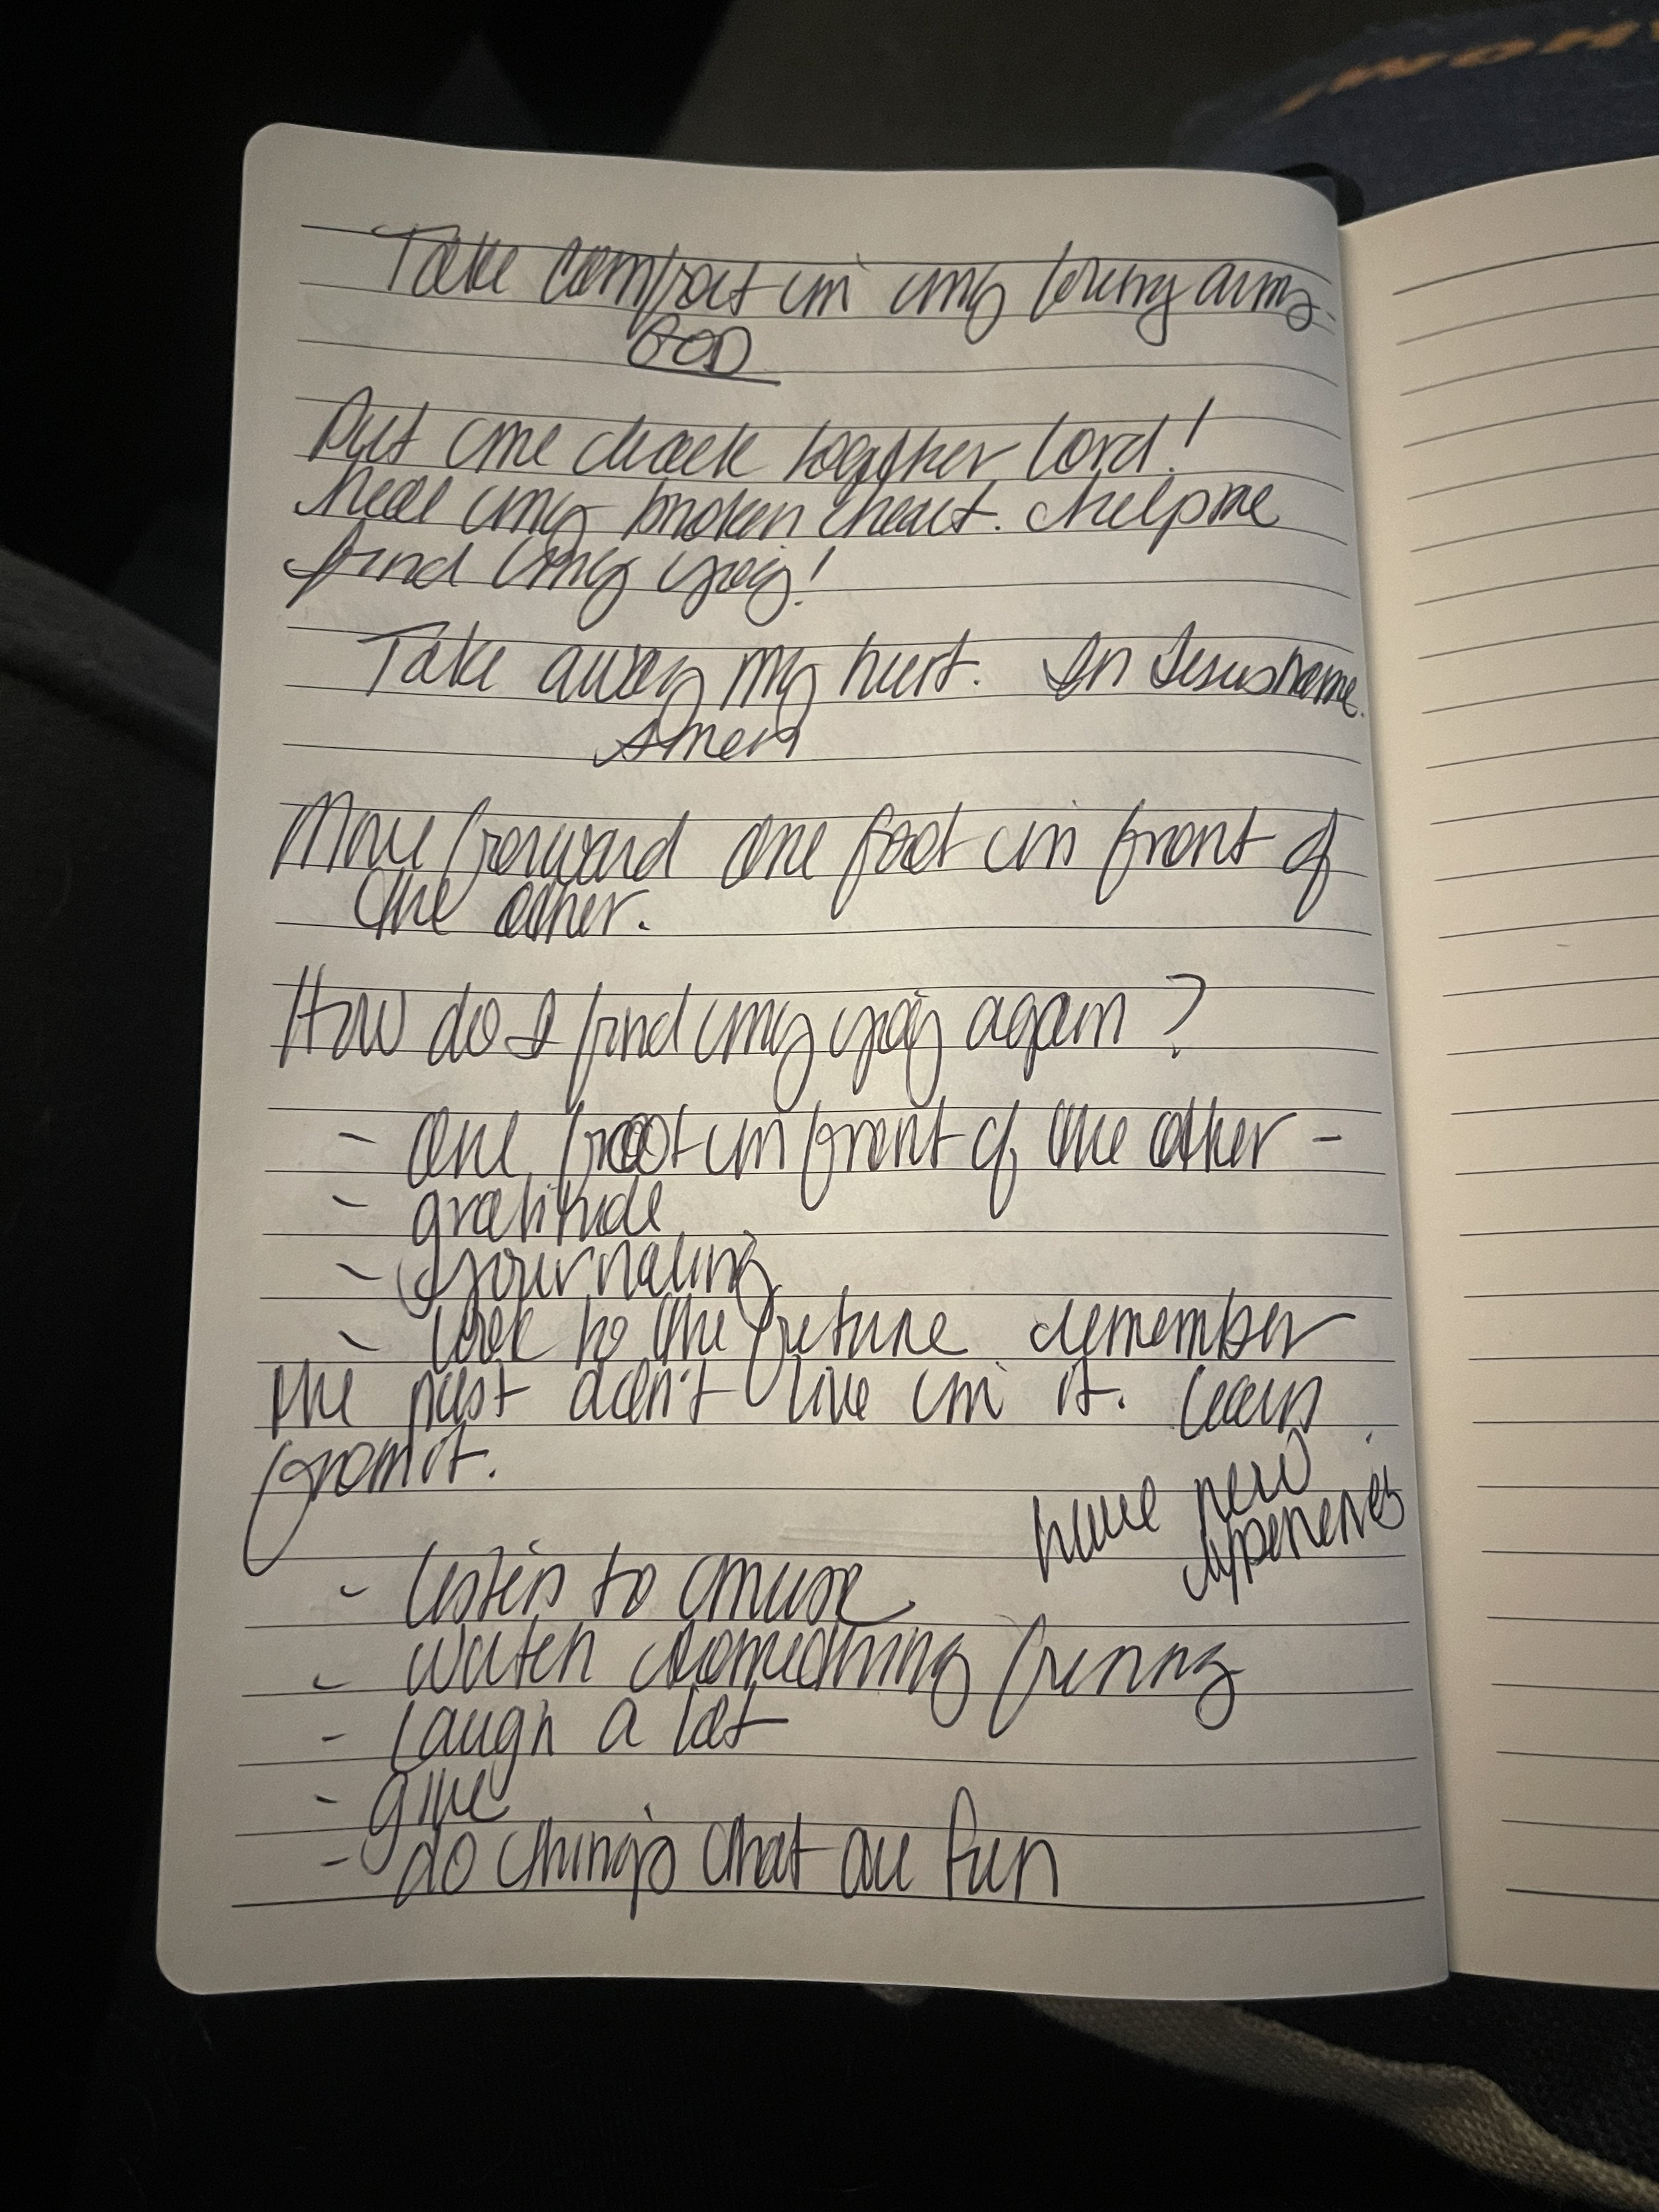 Take comfort in my loving arms.
GOD
Put me back together Lord!
heal my broken heart. help me
find my joy!
Take away my hurt. In Jesus name.
Amen
Move forward one foot in front of
the other.
How do I find my joy again?
- One foot in front of the other -
- gratitude
- journaling
- look to the future remember
the past don't live in it. Learn
from it.
have new
experiences
- listen to music
- watch something funny
- laugh a lot
- give
- do things that are fun